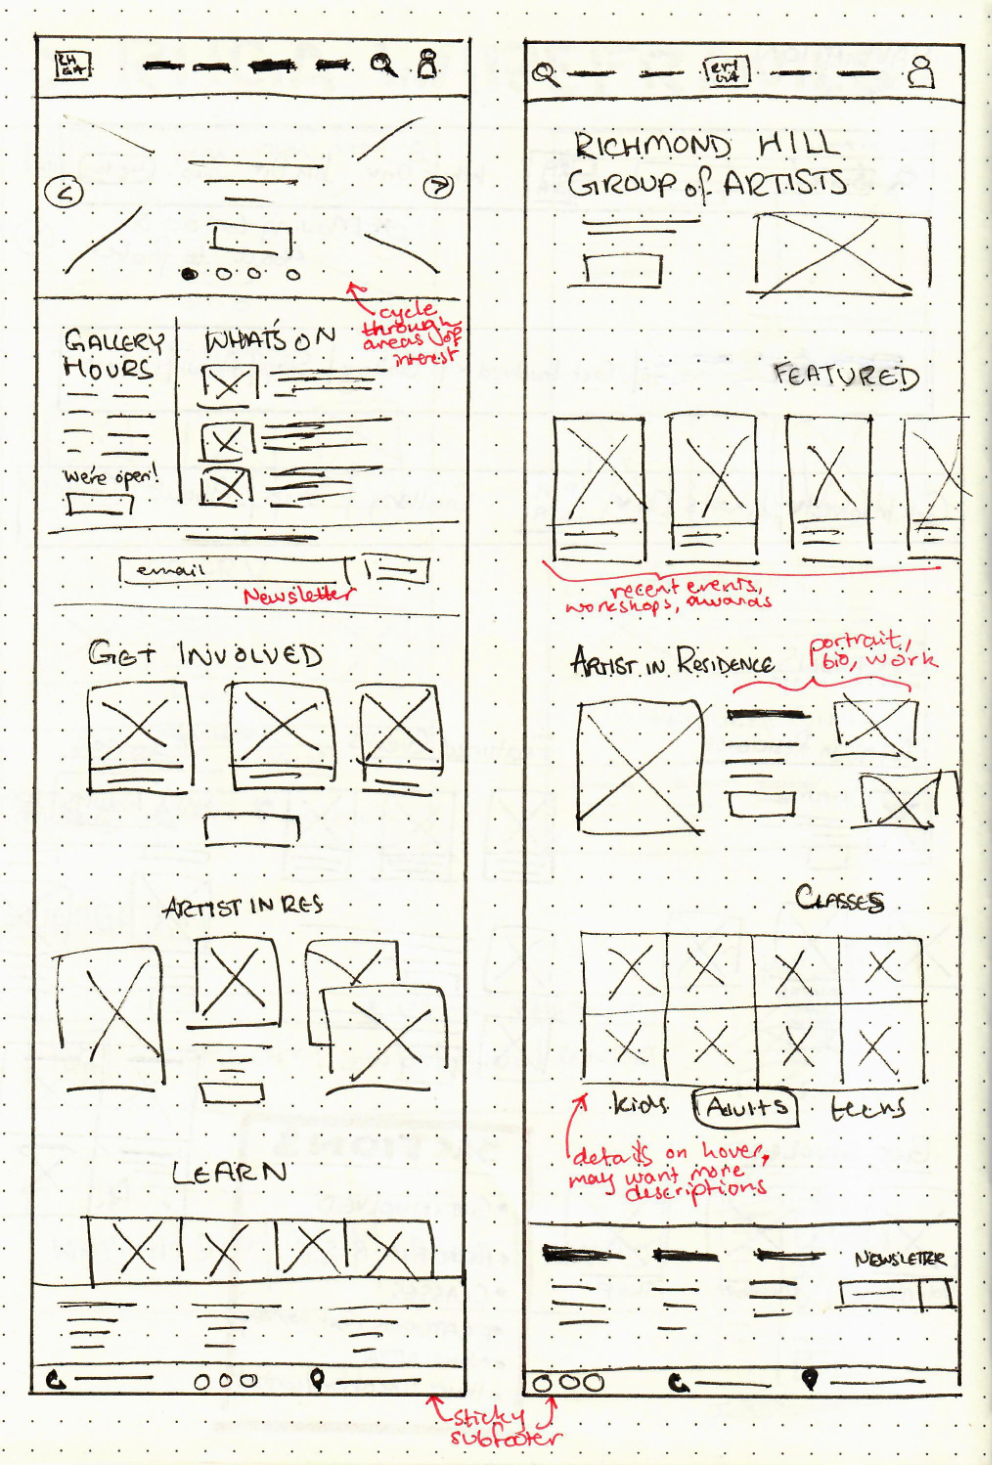 RH
GA
cycle
through
areas of
interest
GALLERY
HOURS
We're open!
WHAT'S ON
email
Newsletter
GET INVOLVED
ARTIST IN RES
LEARN
RH
GA
RICHMOND HILL
GROUP of ARTISTS
FEATURED
recent events,
workshops, awards
ARTIST IN RESIDENCE
portrait,
bio, work
CLASSES
kids Adults teens
details on hover,
may want more
descriptions
NEWSLETTER
sticky
subfooter